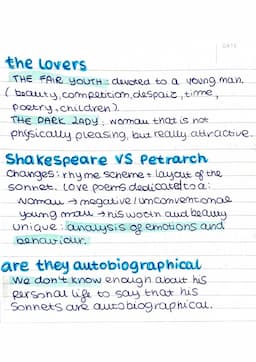 DATE
the lovers
THE FAIR YOUTH: devoted to a young man.
(beauty, competition, despair, time,
poetry, children).
THE DARK LADY: woman that is not
physically pleasing, but really attractive.
Shakespeare VS Petrarch
Changes: rhyme scheme + layout of the
sonnet. Love poems dedicated to a:
woman → negative/unconventional
young man → his worth and beauty
unique: analysis of emotions and
behaviour.
are they autobiographical
We don't know enough about his
personal life to say that his
sonnets are autobiographical.